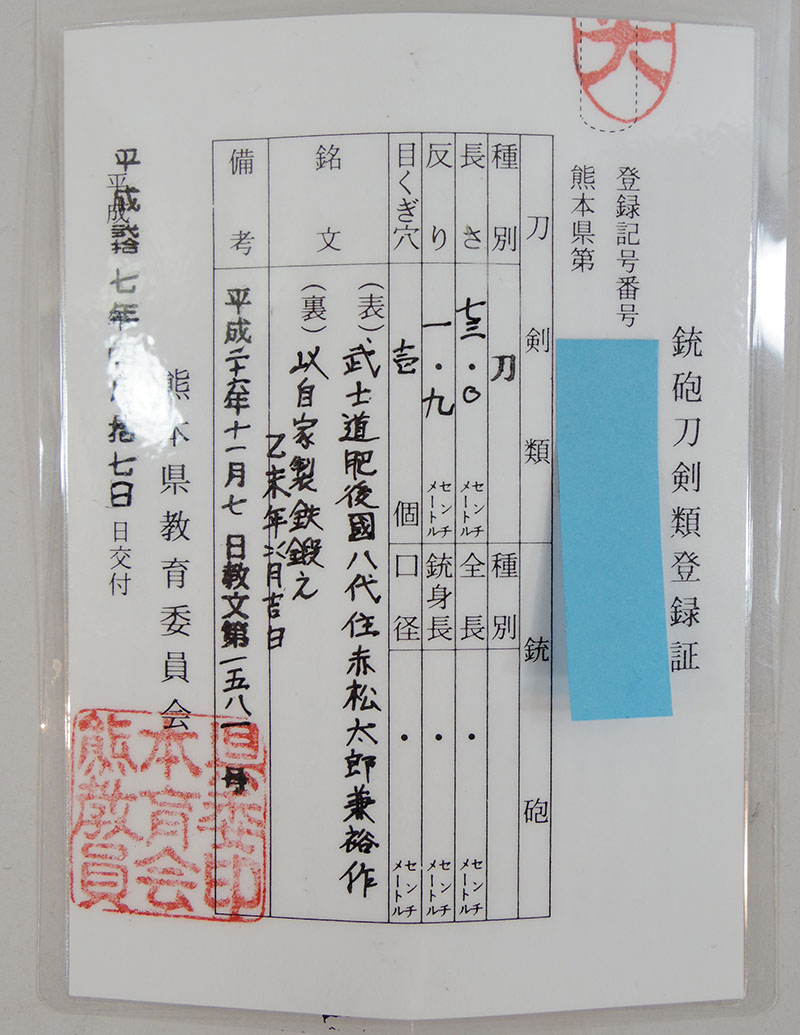 銃砲刀剣類登録証
登録記号番号
熊本県第
刀剣類
銃砲
種別
刀
種別
長さ
七三・〇
センチメートル
全長
・
センチメートル
反り
一・九
センチメートル
銃身長
・
センチメートル
目くぎ穴
壱
個
口径
・
センチメートル
銘文
(表)、武士道肥後國八代住赤松太郎兼裕作
(裏)以自家製鉄鍛之
乙未年二月吉日
備考
平成二十六年十一月七日教文第一五八一号
熊本県教育委員会
平成
七年
拾七日
日交付
県委印
本育会
熊教員